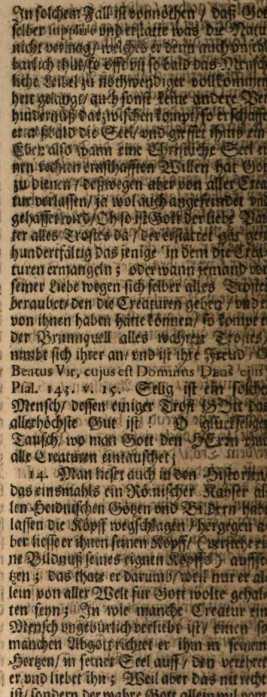 In solchem Fall ist vonnöthen / daß Got
selber und erstatte was die Natur
nicht vermag / welches er denn auch
barlich thut / so offt und so bald das Mensch
liche Leibel zu nothwendiger vollkommen
heit gelangt / auch sonst keine andere Ver
hindernuß darzwischen kompt / so erschafft
er alsbald die Seel / und giesset ihms ein
Eben also wann eine Christliche Seel ei
nen rechten ernsthafften Willen hat Got
zu dienen / deßwegen aber von aller Crea
tur verlassen / ja wol auch angefeindet und
gehasset wird / Oh so ist Gott der liebe Vat
ter alles Trostes da / der erstattet gar gern
hundertfältig das jenige / in dem die Crea
turen ermangeln ; oder wann jemand von
seiner Liebe wegen sich selber alles Trostes
beraubet / den die Creaturen geben / und er
von ihnen haben hätte können / so kompt er
der Brunnquell alles wahren Trostes /
nimbt sich ihrer an / und ist ihre Freud /
Beatus Vir, cujus est Dominus Deus ejus
Psal. 143. v. 15. Selig ist ein solcher
Mensch / dessen einiger Trost GOtt das
allerhöchste Gut ist ! O glückseliger
Tausch / wo man Gott den HErrn umb
alle Creaturen eintauschet ;
14. Man lieset auch in den Historien /
das einsmahls ein Römischer Kayser al
len Heidnischen Götzen und Bildern habe
lassen die Köpff wegschlagen / hergegen a
ber liesse er ihnen seinen Kopff / (verstehe ei
ne Bildnuß seines eignen Kopffs) auffse
tzen ; das thate er darumb / weil nur er al
lein von aller Welt für Gott wolte gehal
ten seyn ; In wie manche Creatur ein
Mensch ungebürlich verliebt ist / einen so
manchen Abgott richtet er ihm in seinem
Hertzen / in seiner Seel auff / den verehret
er und liebet ihn ; Weil aber das nit recht
ist / sondern der wahre Gott allein